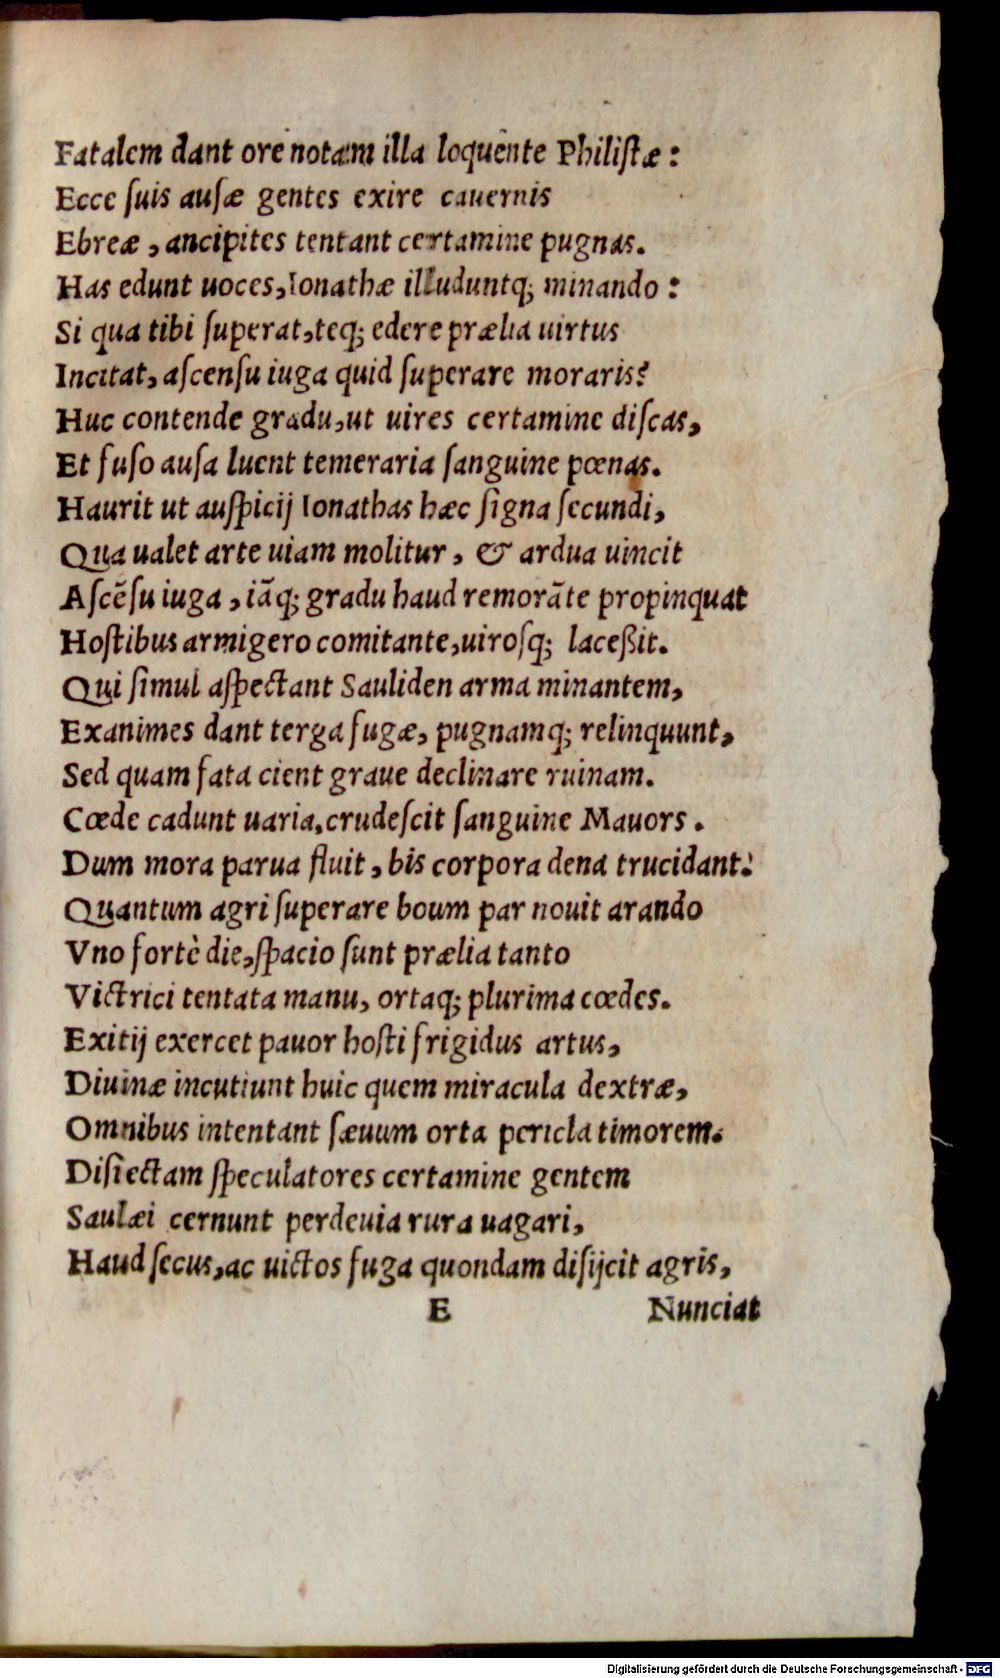 Fatalem dant ore notam illa loquente Philistæ:
Ecce ſuis auſæ gentes exire cauernis
Ebreæ, ancipites tentant certamine pugnas.
Has edunt uoces, Ionathæ illuduntq; minando:
Si qua tibi ſuperat, teq; edere prælia uirtus
Incitat, aſcenſu iuga quid ſuperare moraris?
Huc contende gradu, ut uires certamine diſcas,
Et fuſo auſa luent temeraria ſanguine pœnas.
Haurit ut auſpicij Ionathas hæc ſigna ſecundi,
Qua ualet arte uiam molitur, & ardua uincit
Aſcēſu iuga, iāq; gradu haud remorāte propinquat
Hoſtibus armigero comitante, uiroſq; laceßit.
Qui ſimul aſpectant Sauliden arma minantem,
Exanimes dant terga fugæ, pugnamq; relinquunt,
Sed quam fata cient graue declinare ruinam.
Cœde cadunt uaria, crudeſcit ſanguine Mauors.
Dum mora parua fluit, bis corpora dena trucidant:
Quantum agri ſuperare boum par nouit arando
Vno fortè die, ſpacio ſunt prælia tanto
Victrici tentata manu, ortaq; plurima cœdes.
Exitij exercet pauor hoſti frigidus artus,
Diuinæ incutiunt huic quem miracula dextræ,
Omnibus intentant ſæuum orta pericla timorem.
Diſiectam ſpeculatores certamine gentem
Saulæi cernunt perdeuia rura uagari,
Haud ſecus, ac uictos fuga quondam diſijcit agris,
E Nunciat
Digitalisierung gefördert durch die Deutsche Forschungsgemeinschaft - DFG